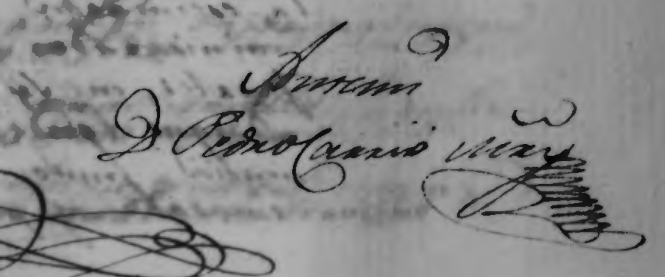 Antemi
D. Pedro Carrió